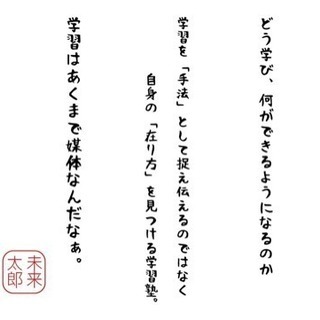 どう学び、何ができるようになるのか
学習を「手法」として捉え伝えるのではなく
自身の「在り方」を見つける学習塾。
学習はあくまで媒体なんだなぁ。
未来
太郎